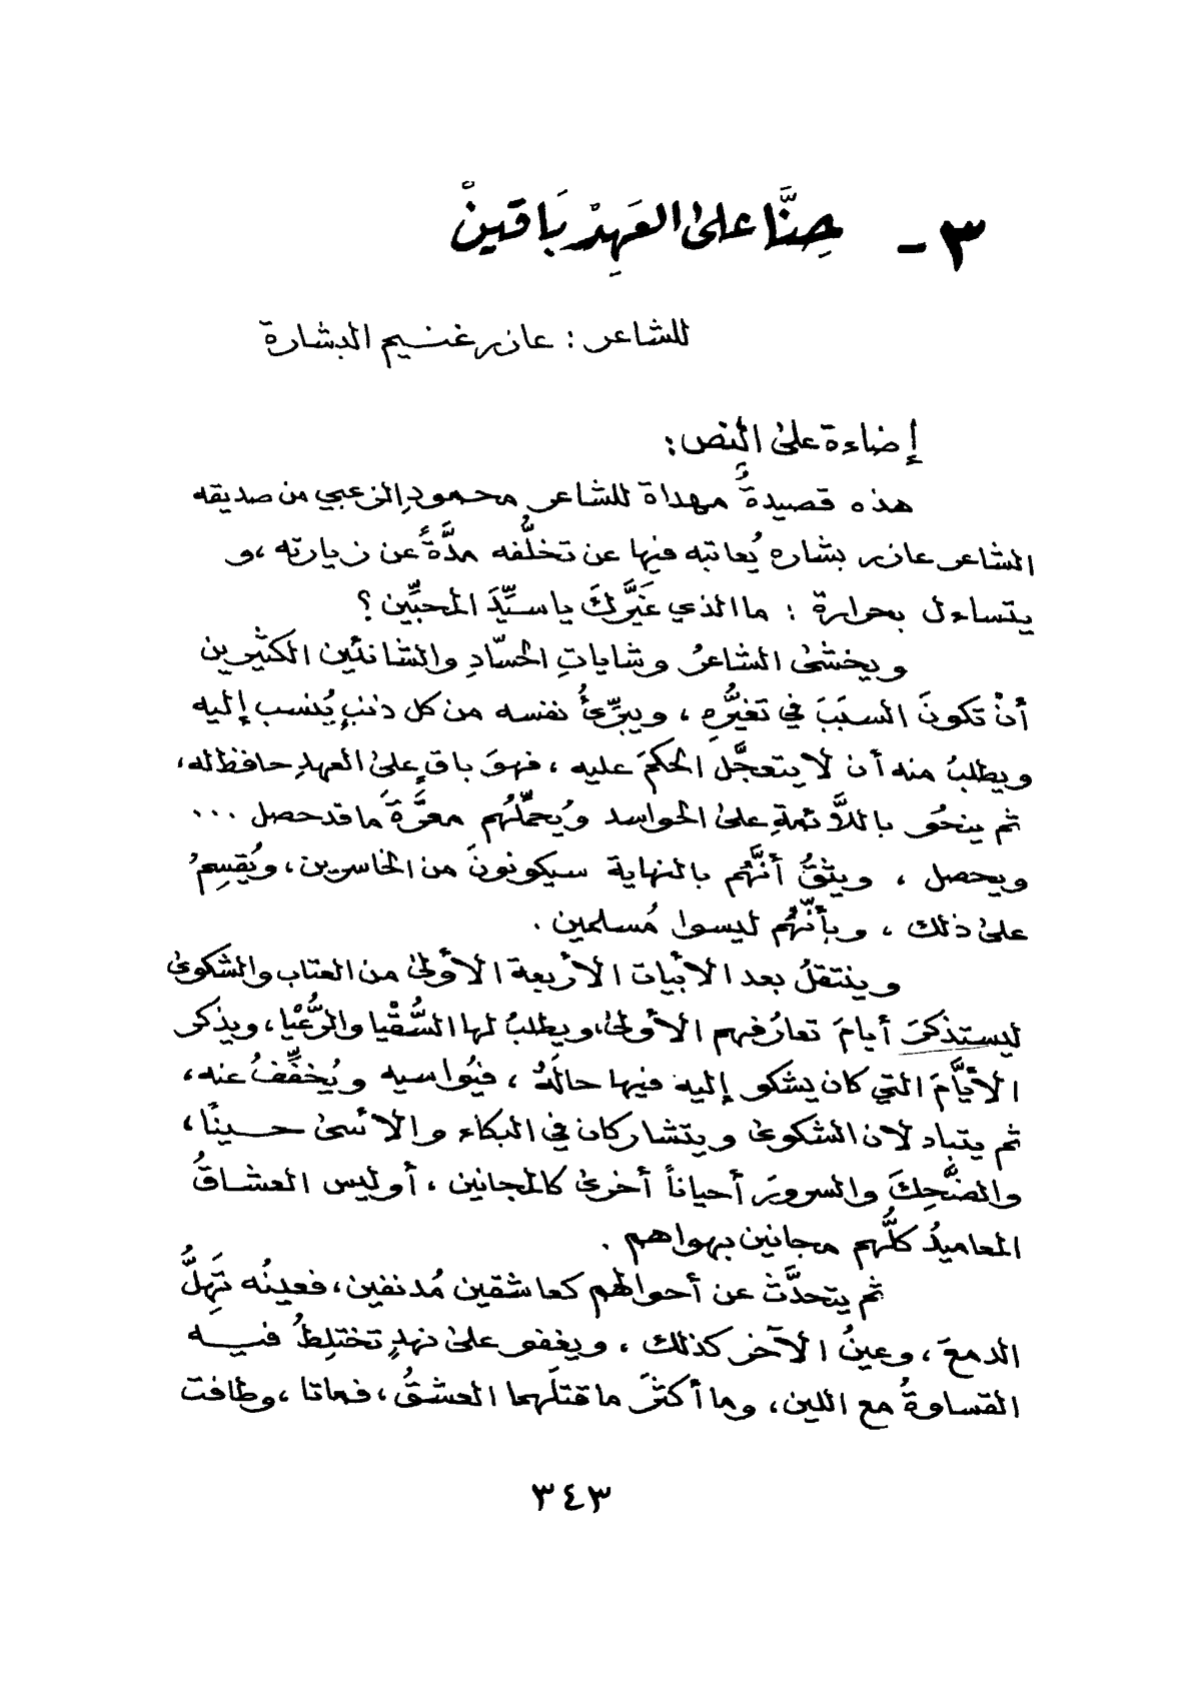 ٣ - حِنَّا على العَهِدْ بَاقينْ
للشاعر : عازر غنـيم البشارة
إضاءة على النص :
هذه قصيدةٌ مهداة للشاعر محمود الزعبي من صديقه
الشاعر عازر بشاره يُعاتبه فيها عن تخلُّفه مدَّةً عن زيارته ، و
يتساءل بحرارة : ما الذي غَيَّركَ يا سيِّدَ المحبِّين ؟
ويخشى الشاعرُ وشاياتِ الحسّادِ والشانئين الكثيرين
أنْ تكونَ السبَبَ في تغيُّرهِ ، ويبرِّئُ نفسه من كل ذنبٍ يُنسب إليه
ويطلبُ منه أن لا يتعجَّل الحكمَ عليه ، فهوَ باقٍ على العهدِ حافظ له ،
ثم ينحُو باللَّائمةِ على الحواسد ويُحمِّلُهم معرَّةَ ما قد حصل ...
ويحصل ، ويثقُ أنَّهُم بالنهاية سيكونونَ من الخاسرين ، ويُقسِمُ
على ذلك ، وبأنَّهُم ليسوا مُسلمين .
وينتقلُ بعد الأبيات الأربعة الأولى من العتاب والشكوى
ليستذكرَ أيامَ تعارُفهم الأولى ، ويطلبُ لها السُّقْيا والرُّعْيا ، ويذكر
الأيَّامَ التي كان يشكو إليه فيها حالَهُ ، فيُواسيه ويُخفِّفُ عنه ،
ثم يتبادلان الشكوى ويتشاركان في البكاء والأسى حـينًا ،
والضَّحِكَ والسرورَ أحياناً أخرى كالمجانين ، أوليس العشـاقُ
المعاميدُ كلُّهم مجانين بهواهم .
ثم يتحدَّث عن أحوالهم كعاشقين مُدنفين ، فعينُه تَهِلُّ
الدمعَ ، وعينُ الآخر كذلك ، ويغفو على نهدٍ تختلِطُ فيـه
القساوةُ مع اللين ، وما أكثرَ ما قتلَهما العشقُ ، فماتا ، وطافت
٣٤٣